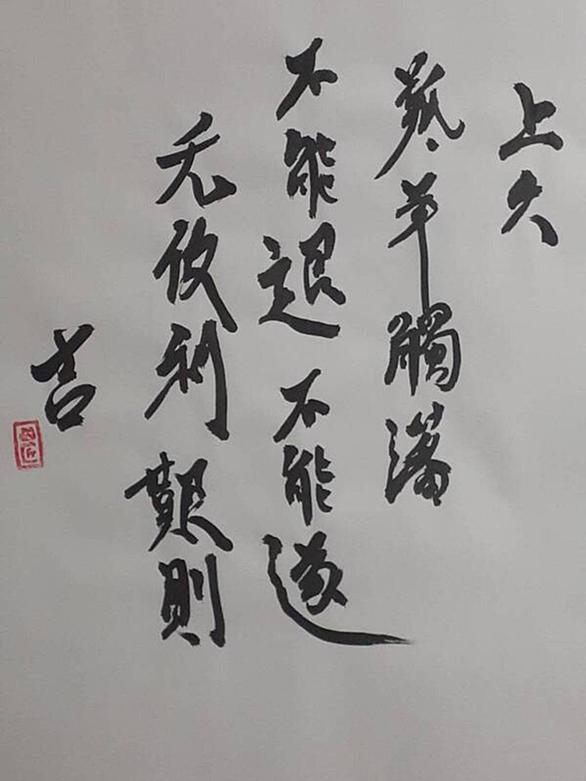 上六
羝羊觸藩
不能退不能遂
无攸利艱則
吉